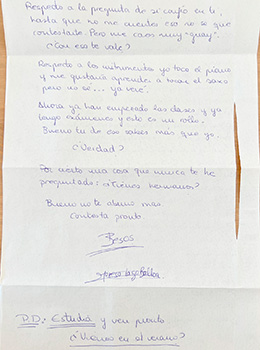 Respecto a la pregunta de si confío en ti,
hasta que no me cuentes eso no se que
contestarte. Pero me caes muy "guay".
¿Con esto vale?
Respecto a los instrumentos yo toco el piano
y me gustaría aprender a tocar el saxo
pero no sé... ya veré.
Ahora ya han empezado las clases y ya
tengo exámenes y esto es un rollo.
Bueno tu de eso sabes más que yo.
¿Verdad?
Por cierto una cosa que nunca te he
preguntado: ¿Tienes hermanos?
Bueno no te aburro más
contesta pronto
Besos
P.D.: Estudia y ven pronto
en el verano?